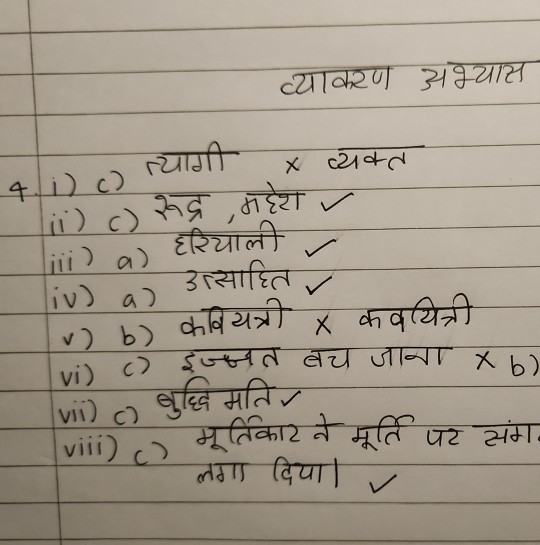 व्याकरण अभ्यास
4. i) c) त्यागी × व्यक्त
ii) c) रूद्र, महेश ✓
iii) a) हरियाली ✓
iv) a) उत्साहित ✓
v) b) कवियत्री × कवयित्री
vi) c) इज्जत बच जाना × b)
vii) c) बुद्धि मति ✓
viii) c) मूर्तिकार ने मूर्ति पर
लगा दिया। ✓